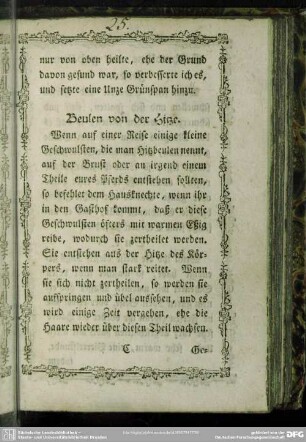 25.
nur von oben heilte, ehe der Grund
davon gesund war, so verbesserte ich es,
und setzte eine Unze Grünspan hinzu.
Beulen von der Hitze.
Wenn auf einer Reise einige kleine
Geschwulsten, die man Hitzbeulen nennt,
auf der Brust oder an irgend einem
Theile eures Pferds entstehen sollten,
so befehlet dem Hausknechte, wenn ihr
in den Gasthof kommt, daß er diese
Geschwulsten öfters mit warmen Eßig
reibe, wodurch sie zertheilet werden.
Sie entstehen aus der Hitze des Kör-
pers, wenn man stark reitet. Wenn
sie sich nicht zertheilen, so werden sie
aufspringen und übel aussehen, und es
wird einige Zeit vergehen, ehe die
Haare wieder über diesen Theil wachsen.
C Ge-